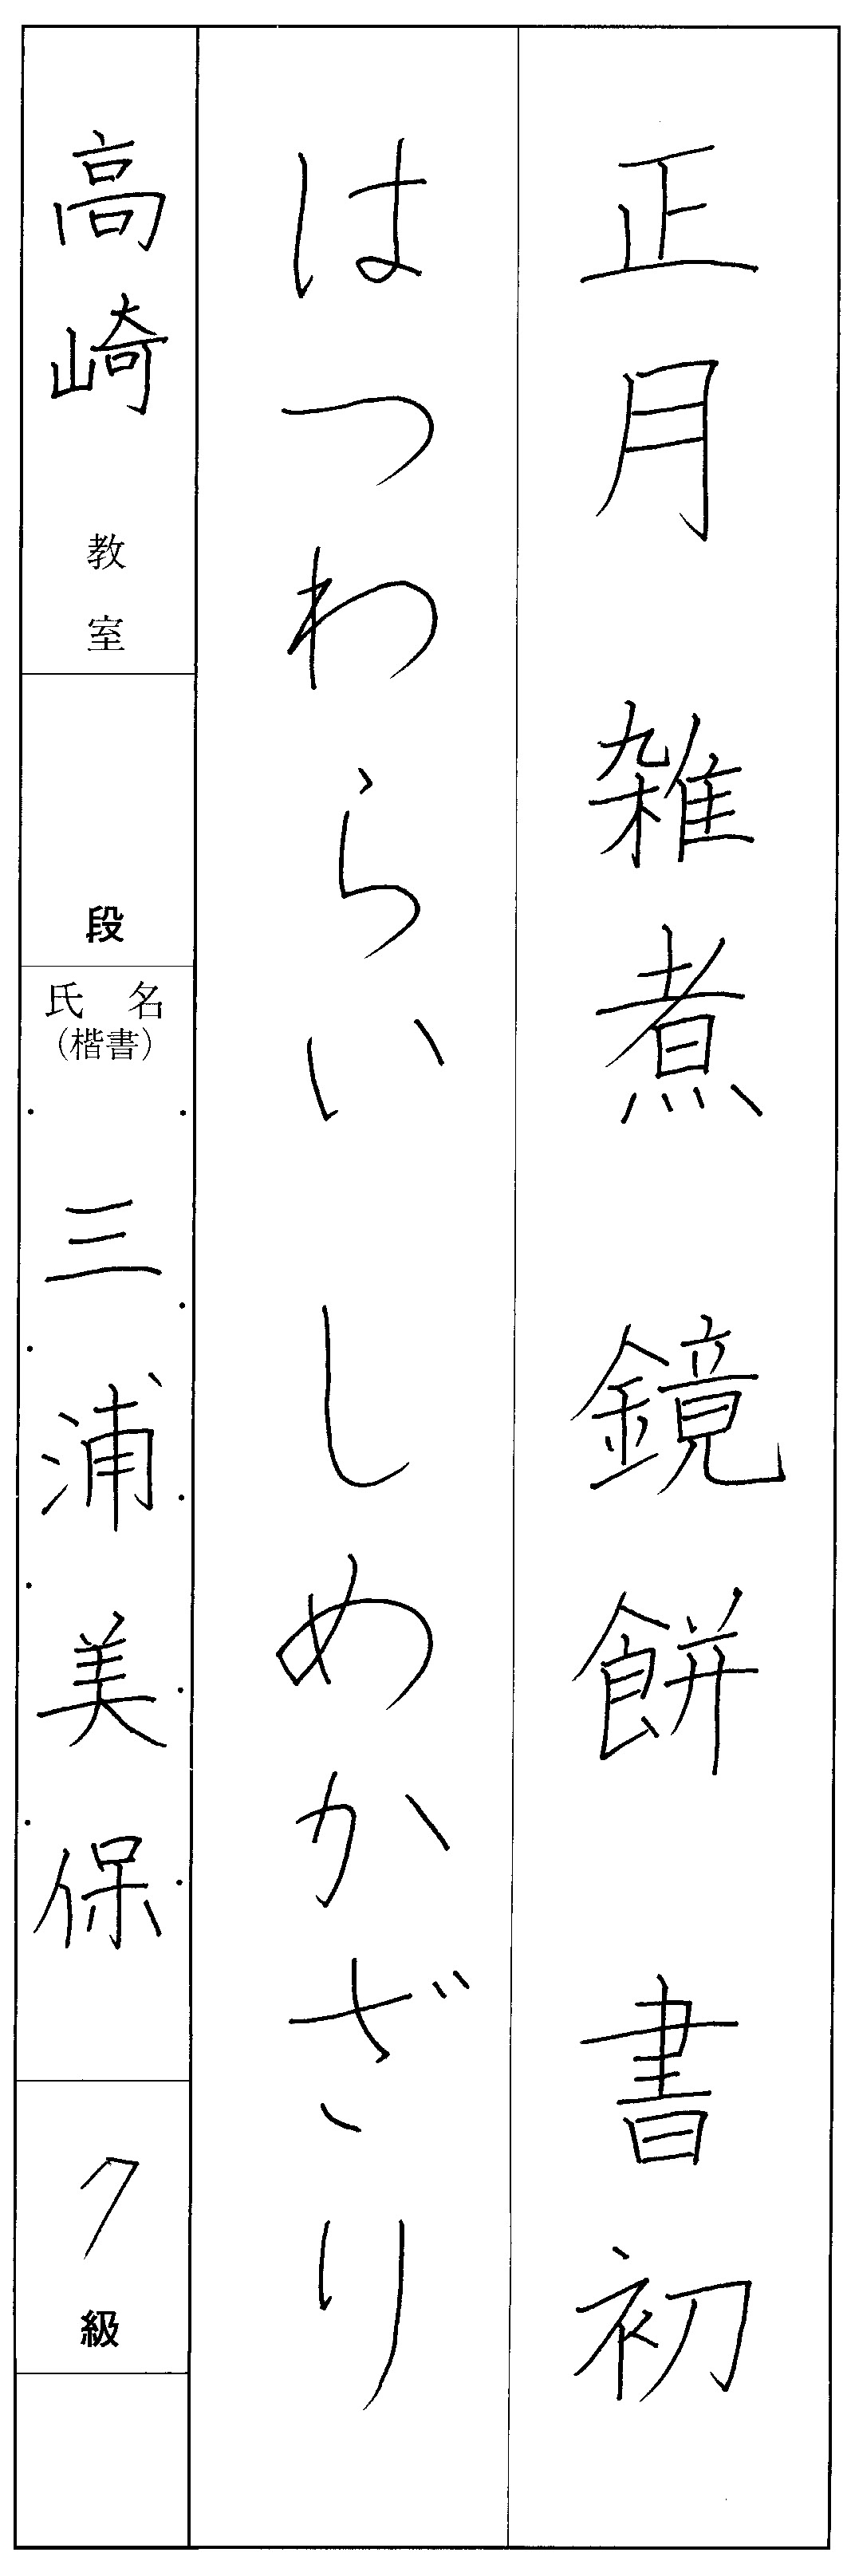 正月 雑煮 鏡餅 書初
はつわらい しめかざり
高崎 教室
段
氏名
(楷書)
三浦美保
7級